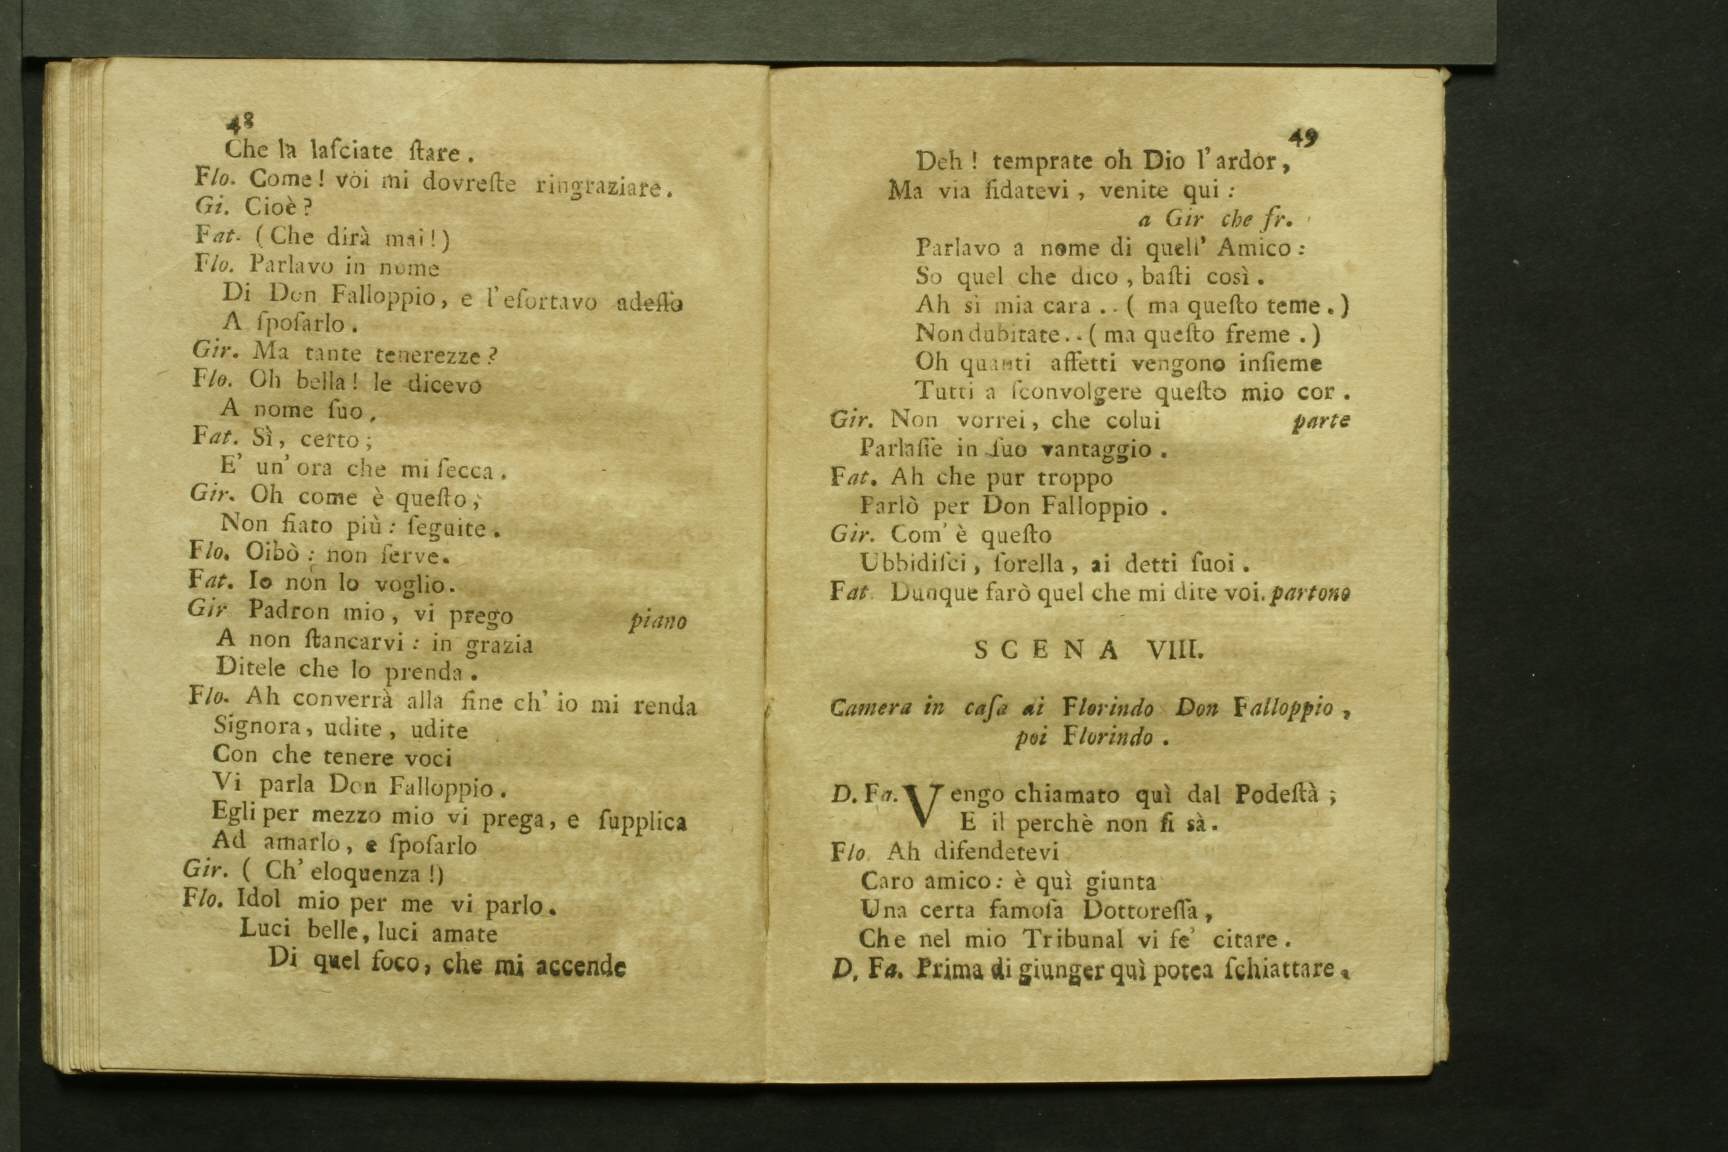 48
Che la laſciate ſtare.
Flo. Come! voi mi dovreſte ringraziare.
Gi. Cioè?
Fat. (Che dirà mai!)
Flo. Parlavo in nome
Di Don Falloppio, e l'eſortavo adeſſo
A ſpoſarlo.
Gir. Ma tante tenerezze?
Flo. Oh bella! le dicevo
A nome ſuo.
Fat. Sì, certo;
E' un' ora che mi ſecca.
Gir. Oh come è queſto;
Non fiato più: ſeguite.
Flo. Oibò: non ſerve.
Fat. Io non lo voglio.
Gir Padron mio, vi prego piano
A non ſtancarvi: in grazia
Ditele che lo prenda.
Flo. Ah converrà alla fine ch' io mi renda
Signora, udite, udite
Con che tenere voci
Vi parla Don Falloppio.
Egli per mezzo mio vi prega, e ſupplica
Ad amarlo, e ſpoſarlo
Gir. ( Ch' eloquenza!)
Flo. Idol mio per me vi parlo.
Luci belle, luci amate
Di quel foco, che mi accende
49
Deh! temprate oh Dio l'ardor,
Ma via fidatevi, venite qui:
a Gir che fr.
Parlavo a nome di quell' Amico:
So quel che dico, baſti così.
Ah sì mia cara .. ( ma queſto teme.)
Non dubitate.. ( ma queſto freme.)
Oh quanti affetti vengono inſieme
Tutti a ſconvolgere queſto mio cor.
Gir. Non vorrei, che colui parte
Parlaſſe in ſuo vantaggio.
Fat. Ah che pur troppo
Parlò per Don Falloppio.
Gir. Com' è queſto
Ubbidiſci, ſorella, ai detti ſuoi.
Fat. Dunque farò quel che mi dite voi. partono
SCENA VIII.
Camera in caſa di Florindo Don Falloppio,
poi Florindo.
D. Fa. Vengo chiamato quì dal Podeſtà;
E il perchè non ſi sà.
Flo. Ah difendetevi
Caro amico: è quì giunta
Una certa famoſa Dottoreſſa,
Che nel mio Tribunal vi fe' citare.
D. Fa. Prima di giunger quì potea ſchiattare.